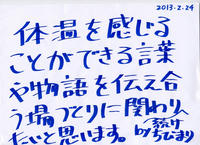 2013.2.24
体温を感じる
ことができる言葉
や物語を伝え合
う場づくりに関わり
たいと思います。
by